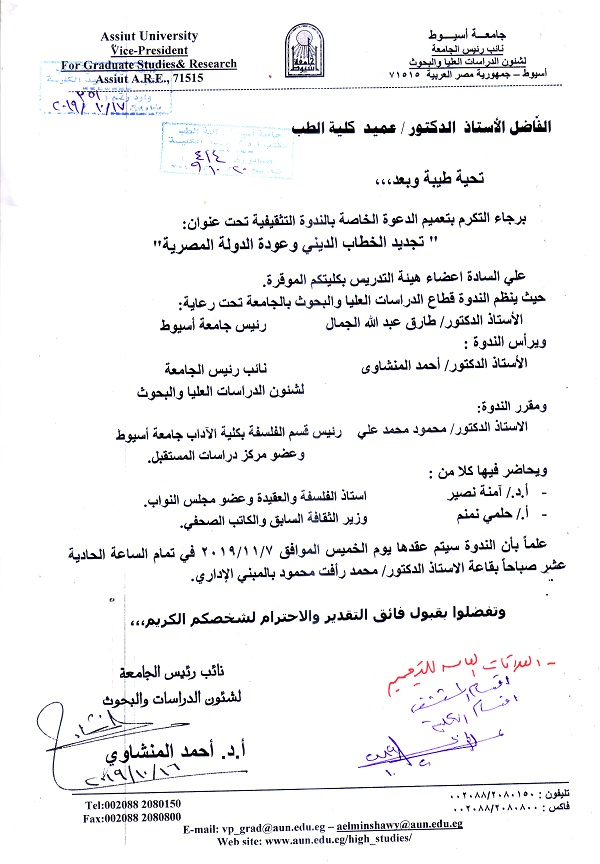 Assiut University
Vice-President
For Graduate Studies& Research
Assiut A.R.E., 71515
جامعة أسيوط
نائب رئيس الجامعة
لشئون الدراسات العليا والبحوث
أسيوط – جمهورية مصر العربية ٧١٥١٥
٣٥١
٢٠١٩/١٠/١٧
الفاضل الأستاذ الدكتور/ عميد كلية الطب
تحية طيبة وبعد،،،
برجاء التكرم بتعميم الدعوة الخاصة بالندوة التثقيفية تحت عنوان:
" تجديد الخطاب الديني وعودة الدولة المصرية"
علي السادة اعضاء هيئة التدريس بكليتكم الموقرة.
حيث ينظم الندوة قطاع الدراسات العليا والبحوث بالجامعة تحت رعاية:
الأستاذ الدكتور/ طارق عبد الله الجمال رئيس جامعة أسيوط
ويرأس الندوة :
الأستاذ الدكتور/ أحمد المنشاوى نائب رئيس الجامعة
لشئون الدراسات العليا والبحوث
ومقرر الندوة:
الاستاذ الدكتور/ محمود محمد علي رئيس قسم الفلسفة بكلية الآداب جامعة أسيوط
وعضو مركز دراسات المستقبل.
ويحاضر فيها كلا من :
- أ.د./ آمنة نصير استاذ الفلسفة والعقيدة وعضو مجلس النواب.
- أ./ حلمي نمنم وزير الثقافة السابق والكاتب الصحفي.
علماً بأن الندوة سيتم عقدها يوم الخميس الموافق ٢٠١٩/١١/٧ في تمام الساعة الحادية
عشر صباحاً بقاعة الاستاذ الدكتور/ محمد رأفت محمود بالمبني الإداري.
وتفضلوا بقبول فائق التقدير والاحترام لشخصكم الكريم،،،
- العلاقات العامه للتعميم
اقسام المستشفى
اقسام الكلية
نائب رئيس الجامعة
لشئون الدراسات والبحوث
أ.د. أحمد المنشاوي
٢٠١٩/١٠/١٦
Tel:002088 2080150
Fax:002088 2080800
تليفون : ٠٠٢٠٨٨/٢٠٨٠١٥٠
فاكس : ٠٠٢٠٨٨/٢٠٨٠٨٠٠
E-mail: vp_grad@aun.edu.eg – aelminshawy@aun.edu.eg
Web site: www.aun.edu.eg/high_studies/